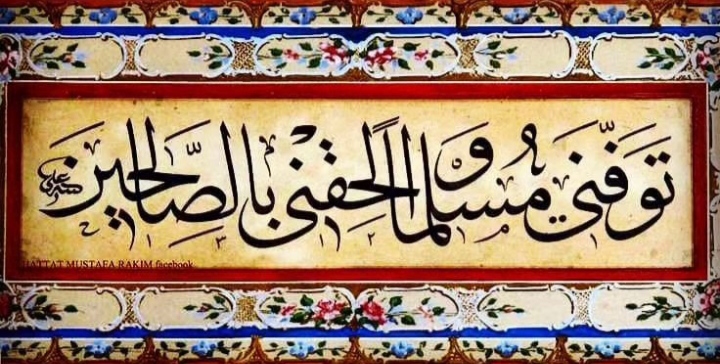 توفّنى مسلماً وألحقنى بالصّالحين
HATTAT MUSTAFA RAKIM facebook